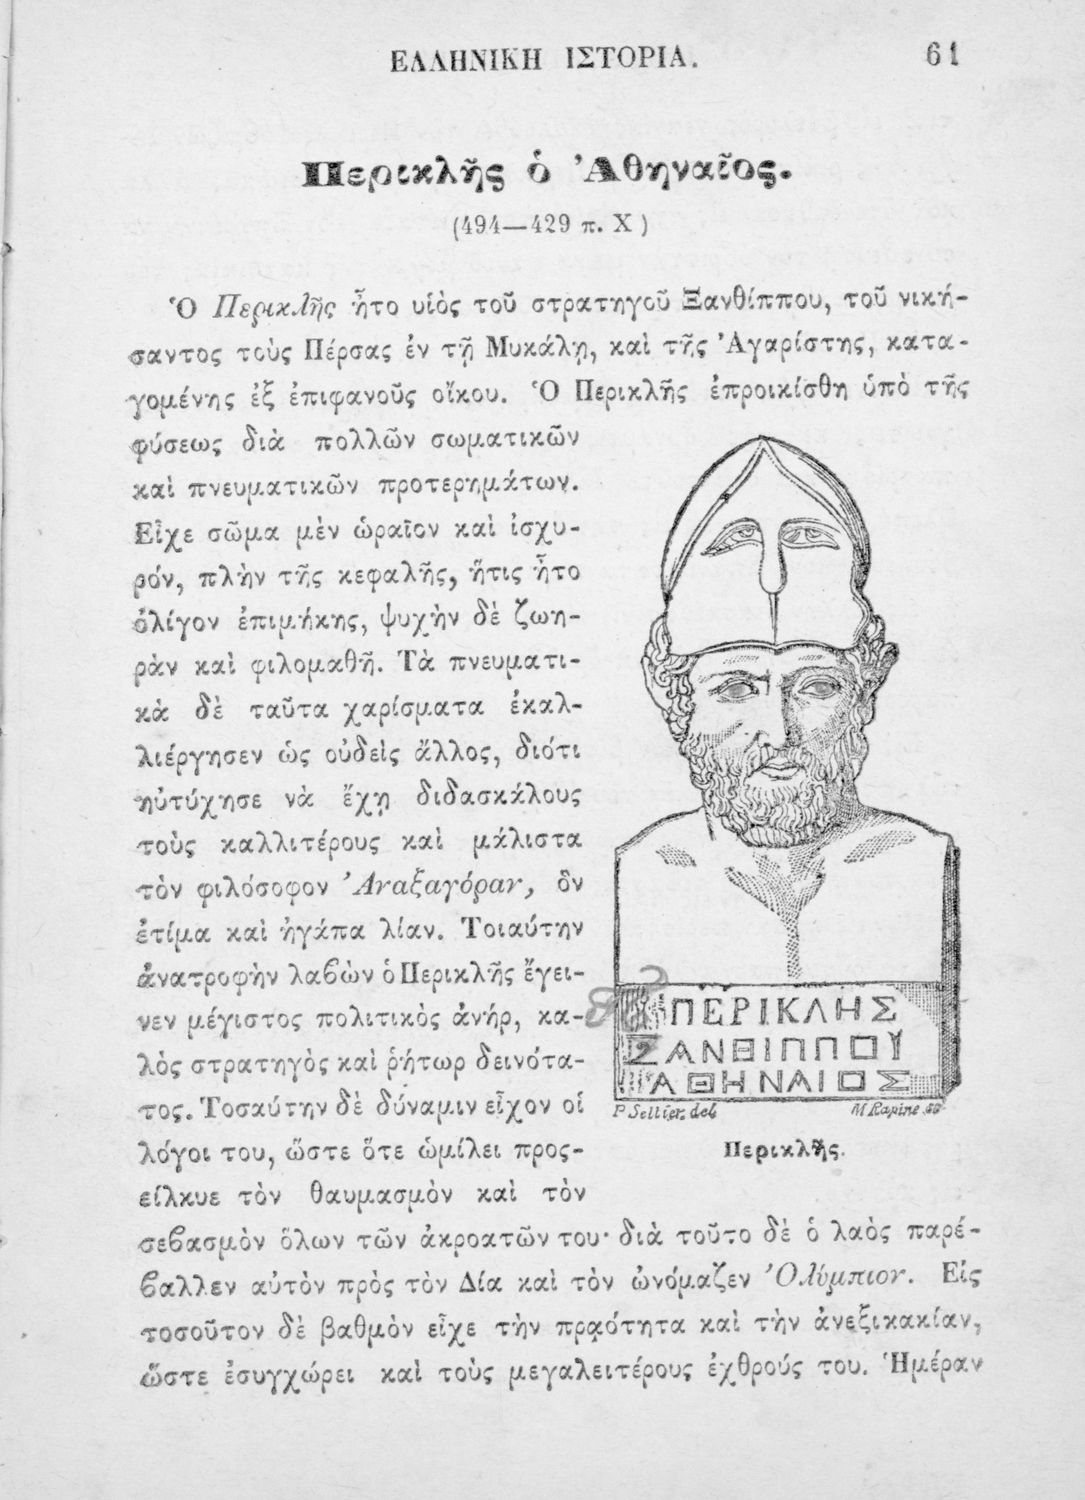 ΕΛΛΗΝΙΚΗ ΙΣΤΟΡΙΑ. 61
Περικλῆς ὁ Ἀθηναῖος.
(494—429 π. Χ)
Ὁ Περικλῆς ἦτο υἱὸς τοῦ στρατηγοῦ Ξανθίππου, τοῦ νική-
σαντος τοὺς Πέρσας ἐν τῇ Μυκάλῃ, καὶ τῆς Ἀγαρίστης, κατα-
γομένης ἐξ ἐπιφανοῦς οἴκου. Ὁ Περικλῆς ἐπροικίσθη ὑπὸ τῆς
φύσεως διὰ πολλῶν σωματικῶν
καὶ πνευματικῶν προτερημάτων.
Εἶχε σῶμα μὲν ὡραῖον καὶ ἰσχυ-
ρόν, πλὴν τῆς κεφαλῆς, ἥτις ἦτο
ὀλίγον ἐπιμήκης, ψυχὴν δὲ ζωη-
ρὰν καὶ φιλομαθῆ. Τὰ πνευματι-
κὰ δὲ ταῦτα χαρίσματα ἐκαλ-
λιέργησεν ὡς οὐδεὶς ἄλλος, διότι
ηὐτύχησε νὰ ἔχῃ διδασκάλους
τοὺς καλλιτέρους καὶ μάλιστα
τὸν φιλόσοφον Ἀναξαγόραν, ὃν
ἐτίμα καὶ ἠγάπα λίαν. Τοιαύτην
ἀνατροφὴν λαβὼν ὁ Περικλῆς ἔγει-
νεν μέγιστος πολιτικὸς ἀνήρ, κα-
λὸς στρατηγὸς καὶ ῥήτωρ δεινότα-
τος. Τοσαύτην δὲ δύναμιν εἶχον οἱ
λόγοι του, ὥστε ὅτε ὡμίλει προς-
είλκυε τὸν θαυμασμὸν καὶ τὸν
σεβασμὸν ὅλων τῶν ἀκροατῶν του· διὰ τοῦτο δὲ ὁ λαὸς παρέ-
βαλλεν αὐτὸν πρὸς τὸν Δία καὶ τὸν ὠνόμαζεν Ὀλύμπιον. Εἰς
τοσοῦτον δὲ βαθμὸν εἶχε τὴν πραότητα καὶ τὴν ἀνεξικακίαν,
ὥστε ἐσυγχώρει καὶ τοὺς μεγαλειτέρους ἐχθρούς του. Ἡμέραν
ΠΕΡΙΚΛΗΣ
ΞΑΝΘΙΠΠΟΥ
ΑΘΗΝΑΙΟΣ
P Sellier. del M Rapine sc
Περικλῆς.